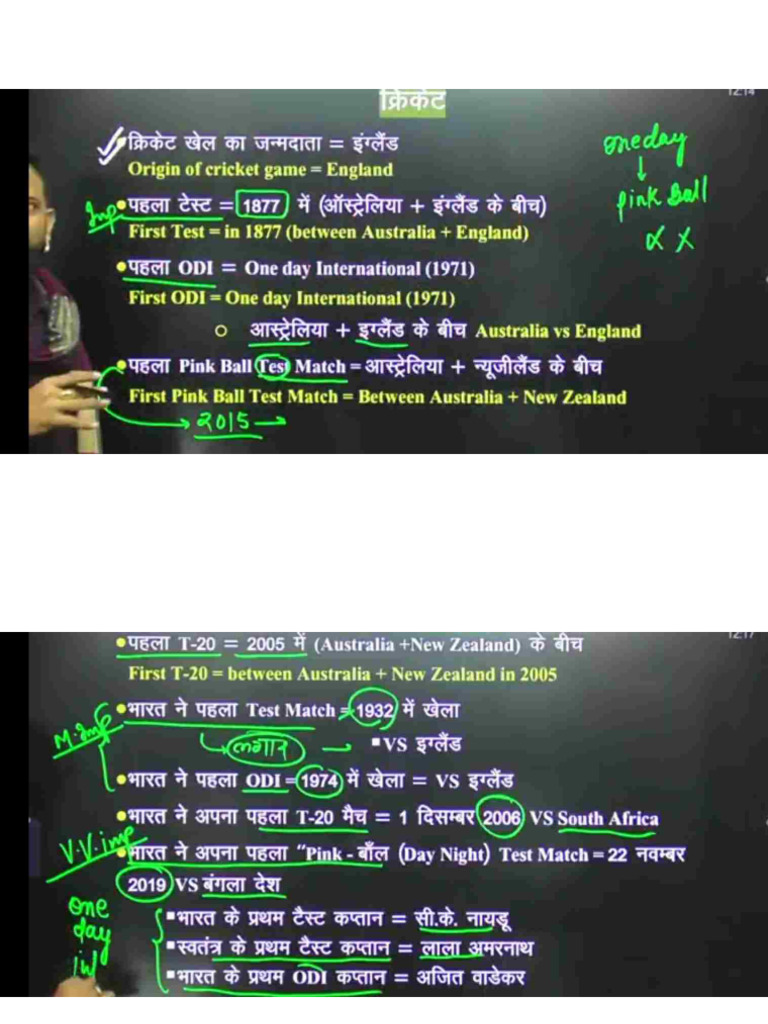 12:14
क्रिकेट
क्रिकेट खेल का जन्मदाता = इंग्लैंड
Origin of cricket game = England
oneday
Imp
पहला टेस्ट = 1877 में (ऑस्ट्रेलिया + इंग्लैंड के बीच)
pink Ball
First Test = in 1877 (between Australia + England)
पहला ODI = One day International (1971)
First ODI = One day International (1971)
आस्ट्रेलिया + इग्लैंड के बीच Australia vs England
पहला Pink Ball Test Match = आस्ट्रेलिया + न्यूजीलैंड के बीच
First Pink Ball Test Match = Between Australia + New Zealand
2015
12:17
पहला T-20 = 2005 में (Australia +New Zealand) के बीच
First T-20 = between Australia + New Zealand in 2005
भारत ने पहला Test Match = 1932 में खेला
M.Imp
लगान
VS इग्लैंड
भारत ने पहला ODI = 1974 में खेला = VS इग्लैंड
भारत ने अपना पहला T-20 मैच = 1 दिसम्बर 2006 VS South Africa
V.V.imp
भारत ने अपना पहला "Pink - बॉल (Day Night) Test Match = 22 नवम्बर
2019 VS बंगला देश
one
day
भारत के प्रथम टैस्ट कप्तान = सी.के. नायडू
स्वतंत्र के प्रथम टैस्ट कप्तान = लाला अमरनाथ
भारत के प्रथम ODI कप्तान = अजित वाडेकर